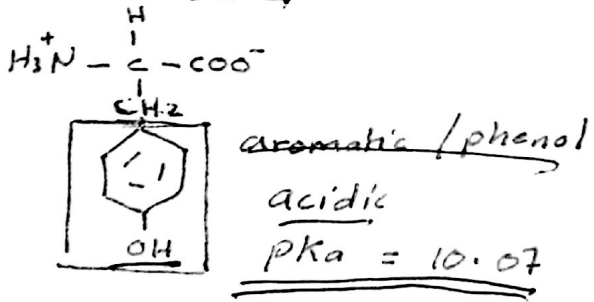 H
H₃N⁺ – C – COO⁻
CH2
aromatic / phenol
acidic
OH
pKa = 10.07